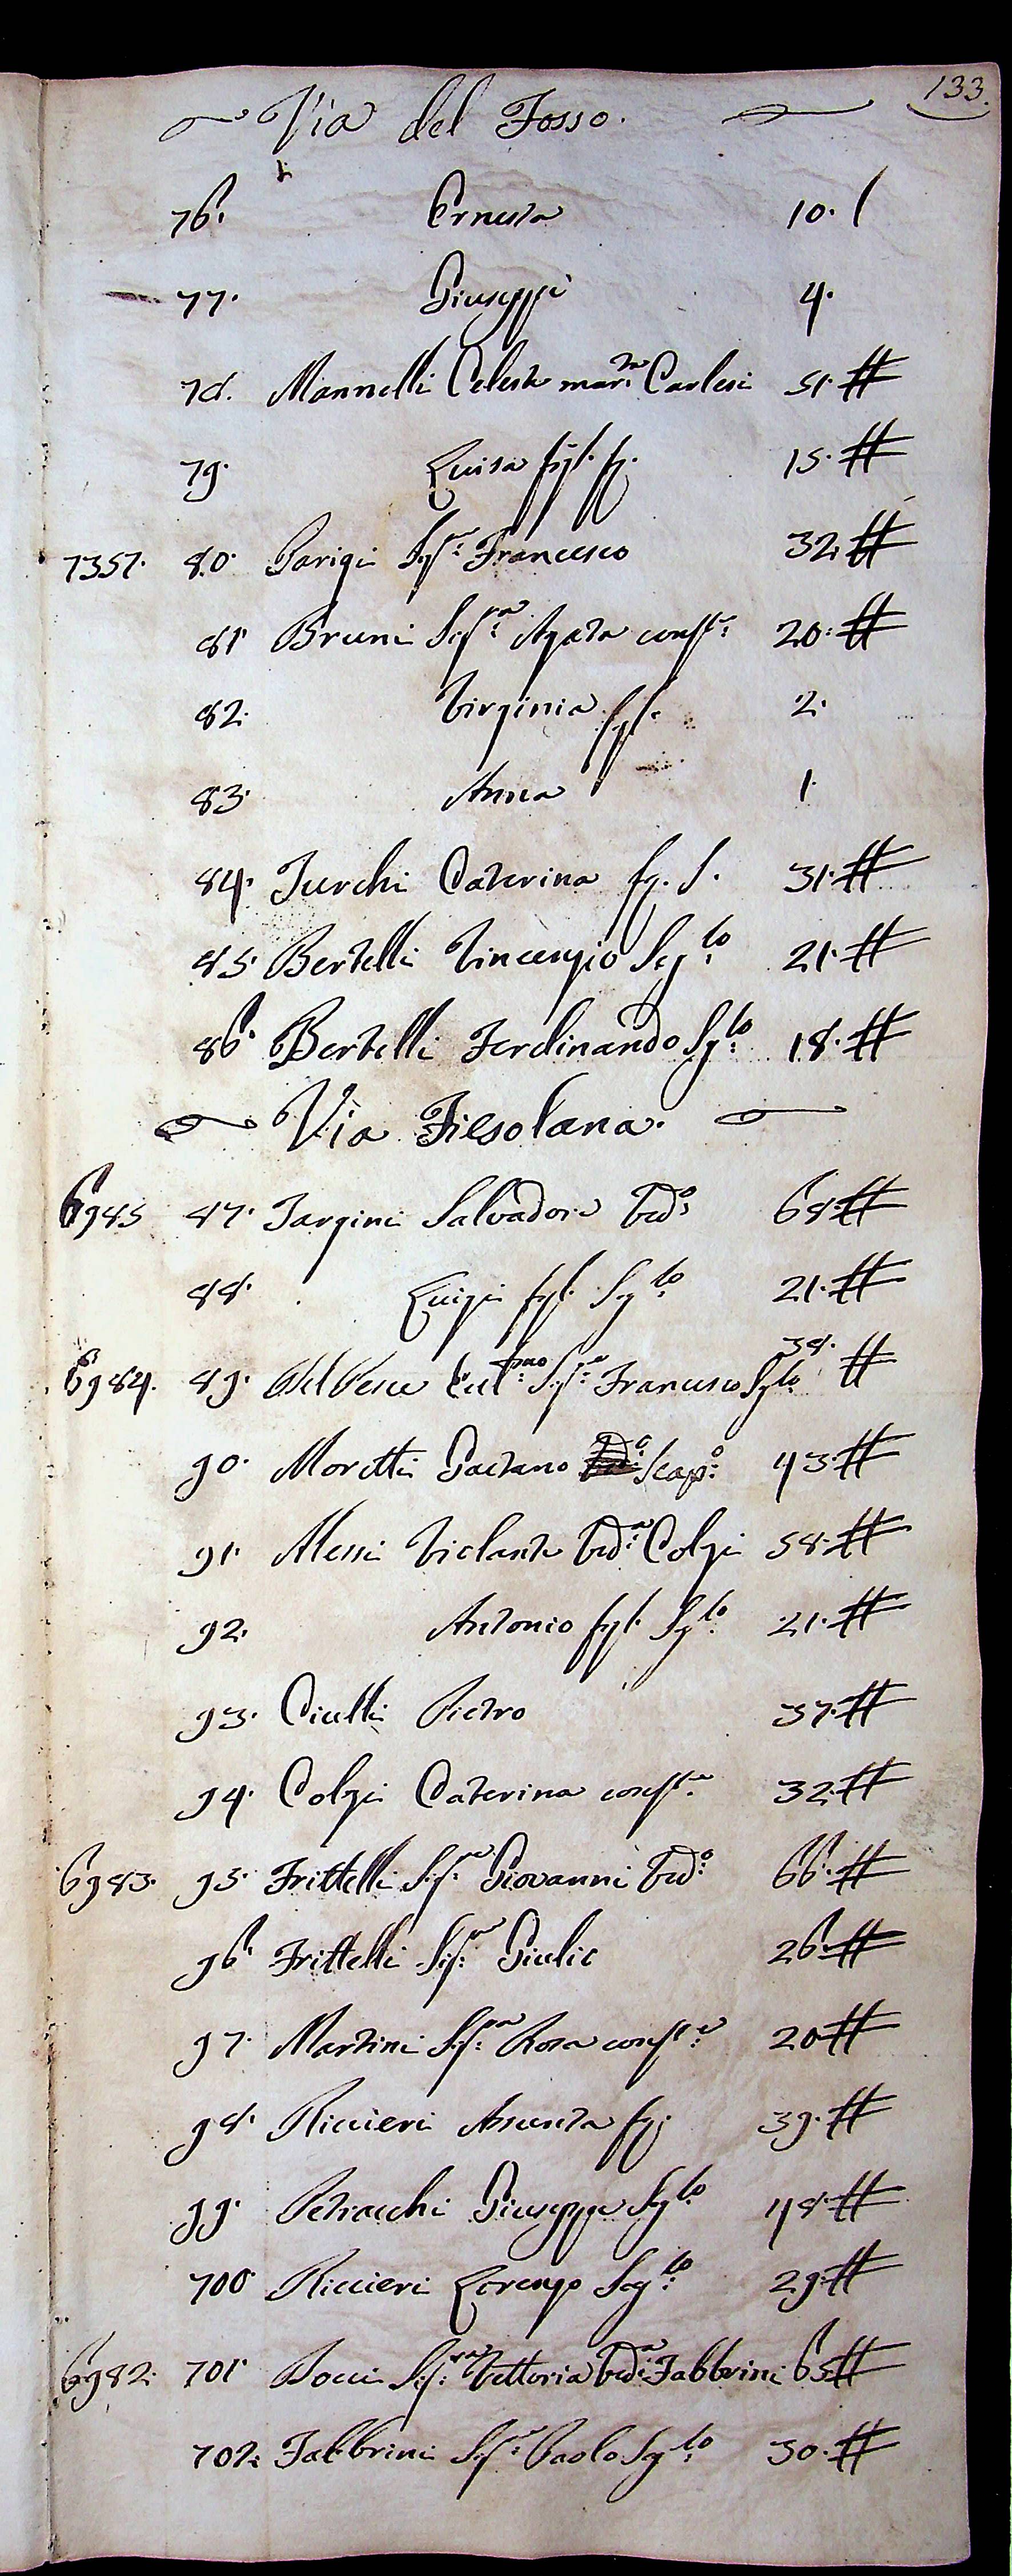 133.
Via del Fosso.
76. Ernesta 10. /
77. Giuseppe 4.
78. Mannelli Celeste mar:ta Carlesi 51. #
79. Luisa figl. f. 15. #
7357. 80. Parigi Sig:re Francesco 32. #
81 Bruni Sig:ra Agata cons:e 20. #
82. Virginia figl. 2.
83. Anna 1.
84. Turchi Caterina f. S. 31. #
85. Bertelli Vincenzio Sg:lo 21. #
86. Bertelli Ferdinando Sg:lo 18. #
Via Fiesolana.
6985 87. Targini Salvadore Ved:o 68. #
88. Luigi figl. Sg:lo 21. #
6984. 89. Del Pesce Sig:re Francesco Sg:lo 38. #
90. Moretti Gaetano Scap:o 43. #
91. Messi Violante Ved:a Colzi 58. #
92. Antonio figl. Sg:lo 21. #
93. Ciulli Pietro 37. #
94. Colzi Caterina cons:e 32. #
6983. 95. Frittelli Sig:re Giovanni Ved:o 66. #
96. Frittelli Sig:re Giulio 26. #
97. Martini Sig:ra Rosa cons:e 20 #
98. Riccieri Assunta f. 39. #
99. Petracchi Giuseppe Sg:lo 48. #
700. Riccieri Lorenzo Sg:lo 29. #
6982. 701. Bocci Sig:ra Vettoria Ved:a Fabbrini 65 #
702. Fabbrini Sig:re Paolo Sg:lo 30. #